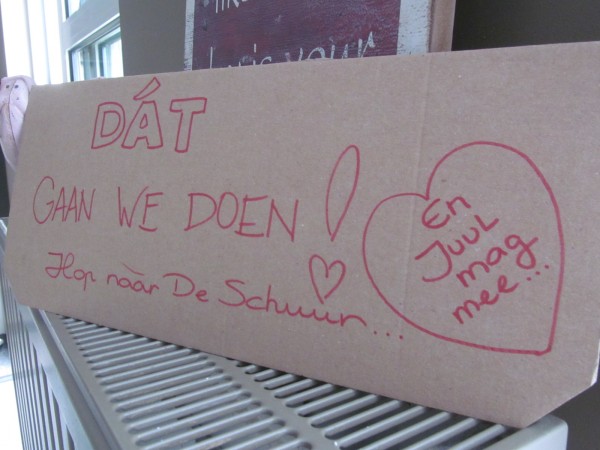 DÁT
GAAN WE DOEN!
Hop nààr De Schuur...
En
JUUL
mag
mee...
your